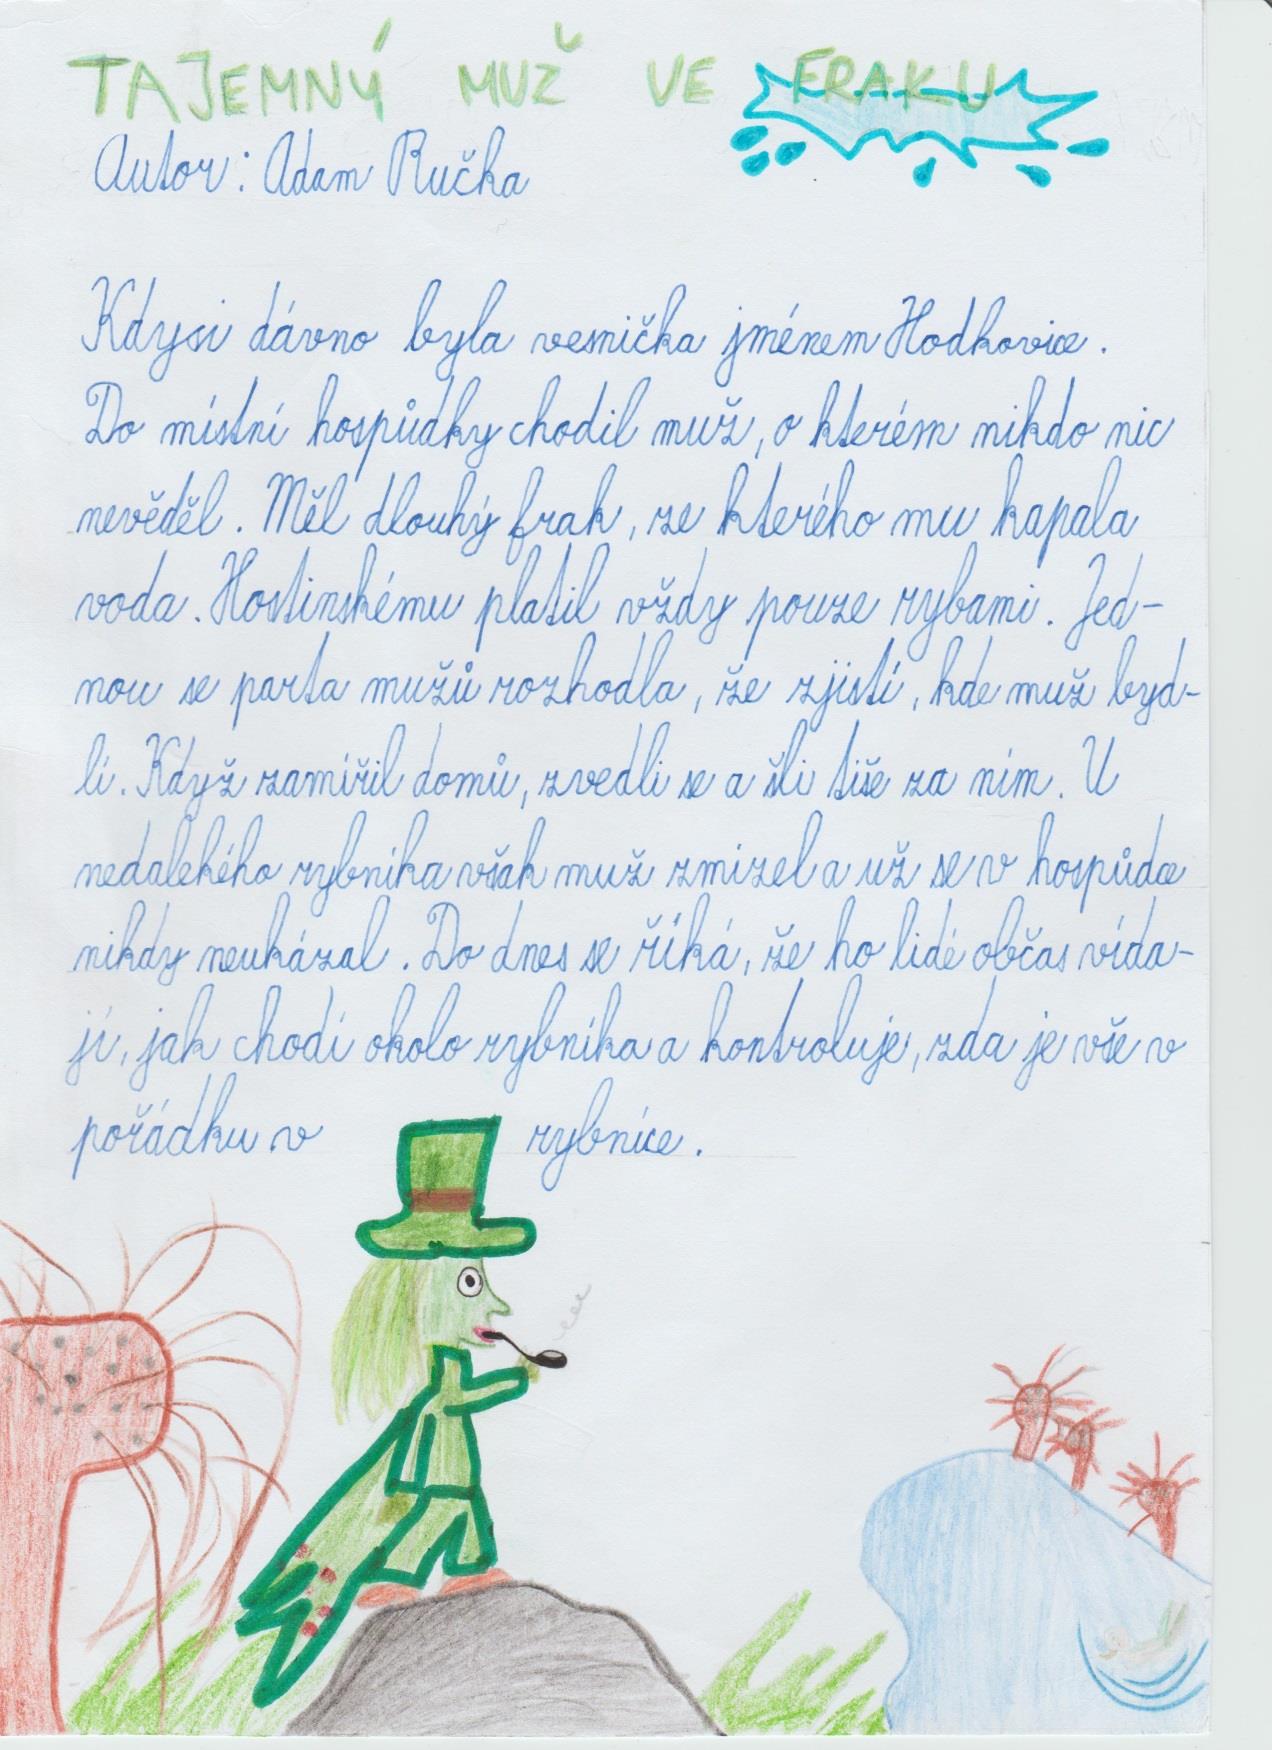 TAJEMNÝ MUŽ VE FRAKU
Autor: Adam Ručka
Kdysi dávno byla vesnička jménem Hodkovice.
Do místní hospůdky chodil muž, o kterém nikdo nic
nevěděl. Měl dlouhý frak, ze kterého mu kapala
voda. Hostinskému platil vždy pouze rybami. Jed-
nou se parta mužů rozhodla, že zjistí, kde muž byd-
lí. Když zamířil domů, zvedli se a šli tiše za ním. U
nedalekého rybníka však muž zmizel a už se v hospůdce
nikdy neukázal. Do dnes se říká, že ho lidé občas vída-
jí, jak chodí okolo rybníka a kontroluje, zda je vše v
pořádku v rybníce.